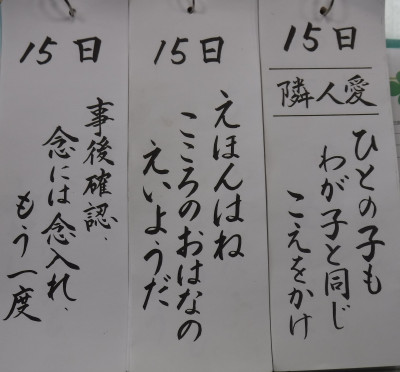 15日
隣人愛
ひとの子も
わが子と同じ
こえをかけ
15日
えほんはね
こころのおはなの
えいようだ
15日
事後確認、
念には念入れ、
もう一度